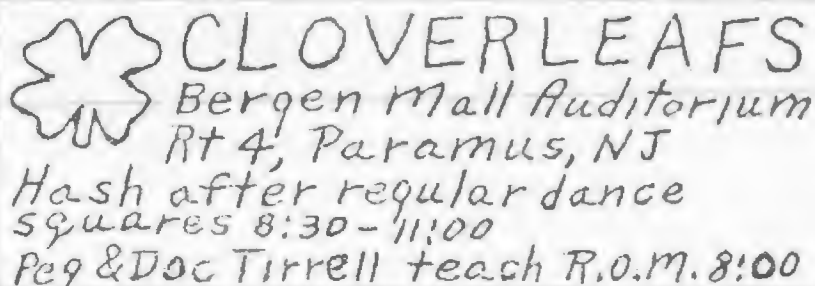 CLOVERLEAFS
Bergen Mall Auditorium
Rt 4, Paramus, NJ
Hash after regular dance
squares 8:30-11:00
Peg & Doc Tirrell teach R.O.M. 8:00